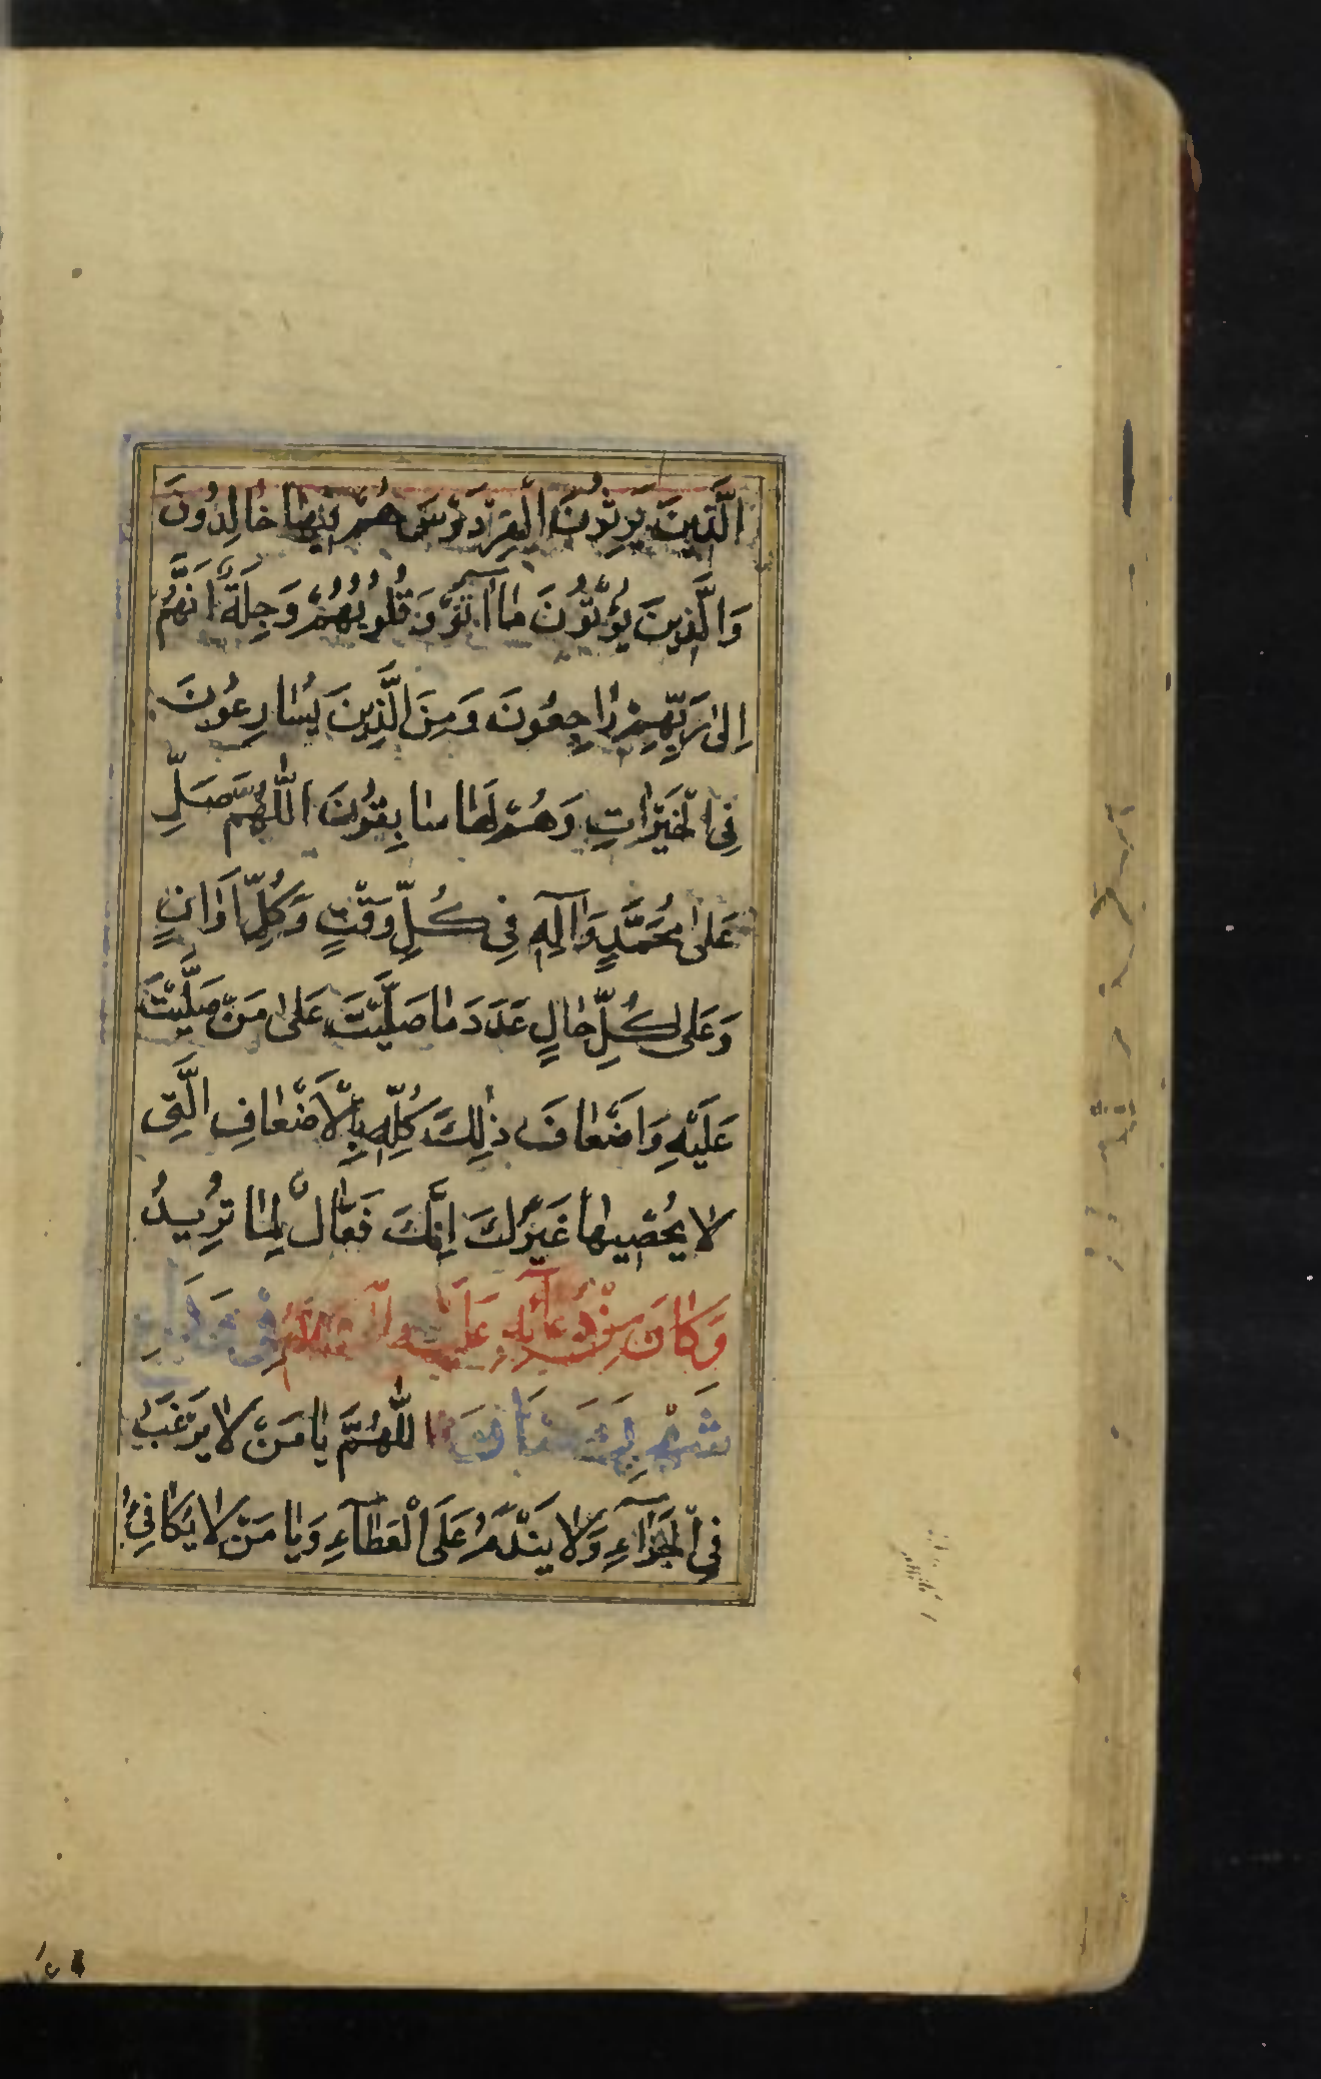 الَّذِينَ يَرِثُونَ الْفِرْدَوْسَ هُمْ فِيهَا خَالِدُونَ
وَالَّذِينَ يُؤْتُونَ مَا آتَوْ وَقُلُوبُهُمْ وَجِلَةٌ اَنَّهُمْ
اِلىٰ رَبِّهِمْ رَاجِعُونَ وَمِنَ الَّذِينَ يُسَارِعُونَ
فِي الْخَيْرَاتِ وَهُمْ لَهَا سَابِقُونَ اللّٰهُمَّ صَلِّ
عَلىٰ مُحَمَّدٍ وَآلِهِ فِي كُلِّ وَقْتٍ وَكُلِّ اَوَانٍ
وَعَلى كُلِّ حَالٍ عَدَدَ مَا صَلَّيْتَ عَلىٰ مَنْ صَلَّيْتَ
عَلَيْهِ وَاَضْعَافَ ذٰلِكَ كُلِّهِ بِالْاَضْعَافِ الَّتِي
لَا يُحْصِيهَا غَيْرُكَ اِنَّكَ فَعَّالٌ لِمَا تُرِيدُ
وَكَانَ مِنْ دُعَآئِهِ عَلَيْهِ السَّلَامُ فِي وَدَاعِ
شَهْرِ رَمَضَانَ اللّٰهُمَّ يَا مَنْ لَا يَرْغَبُ
فِي الْجَزَآءِ وَلَا يَنْدَمُ عَلَى الْعَطَآءِ وَيَا مَنْ لَا يُكَافِئُ